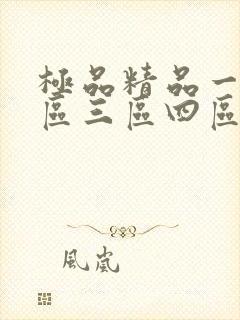 極品精品一
區三區四區
風嵐